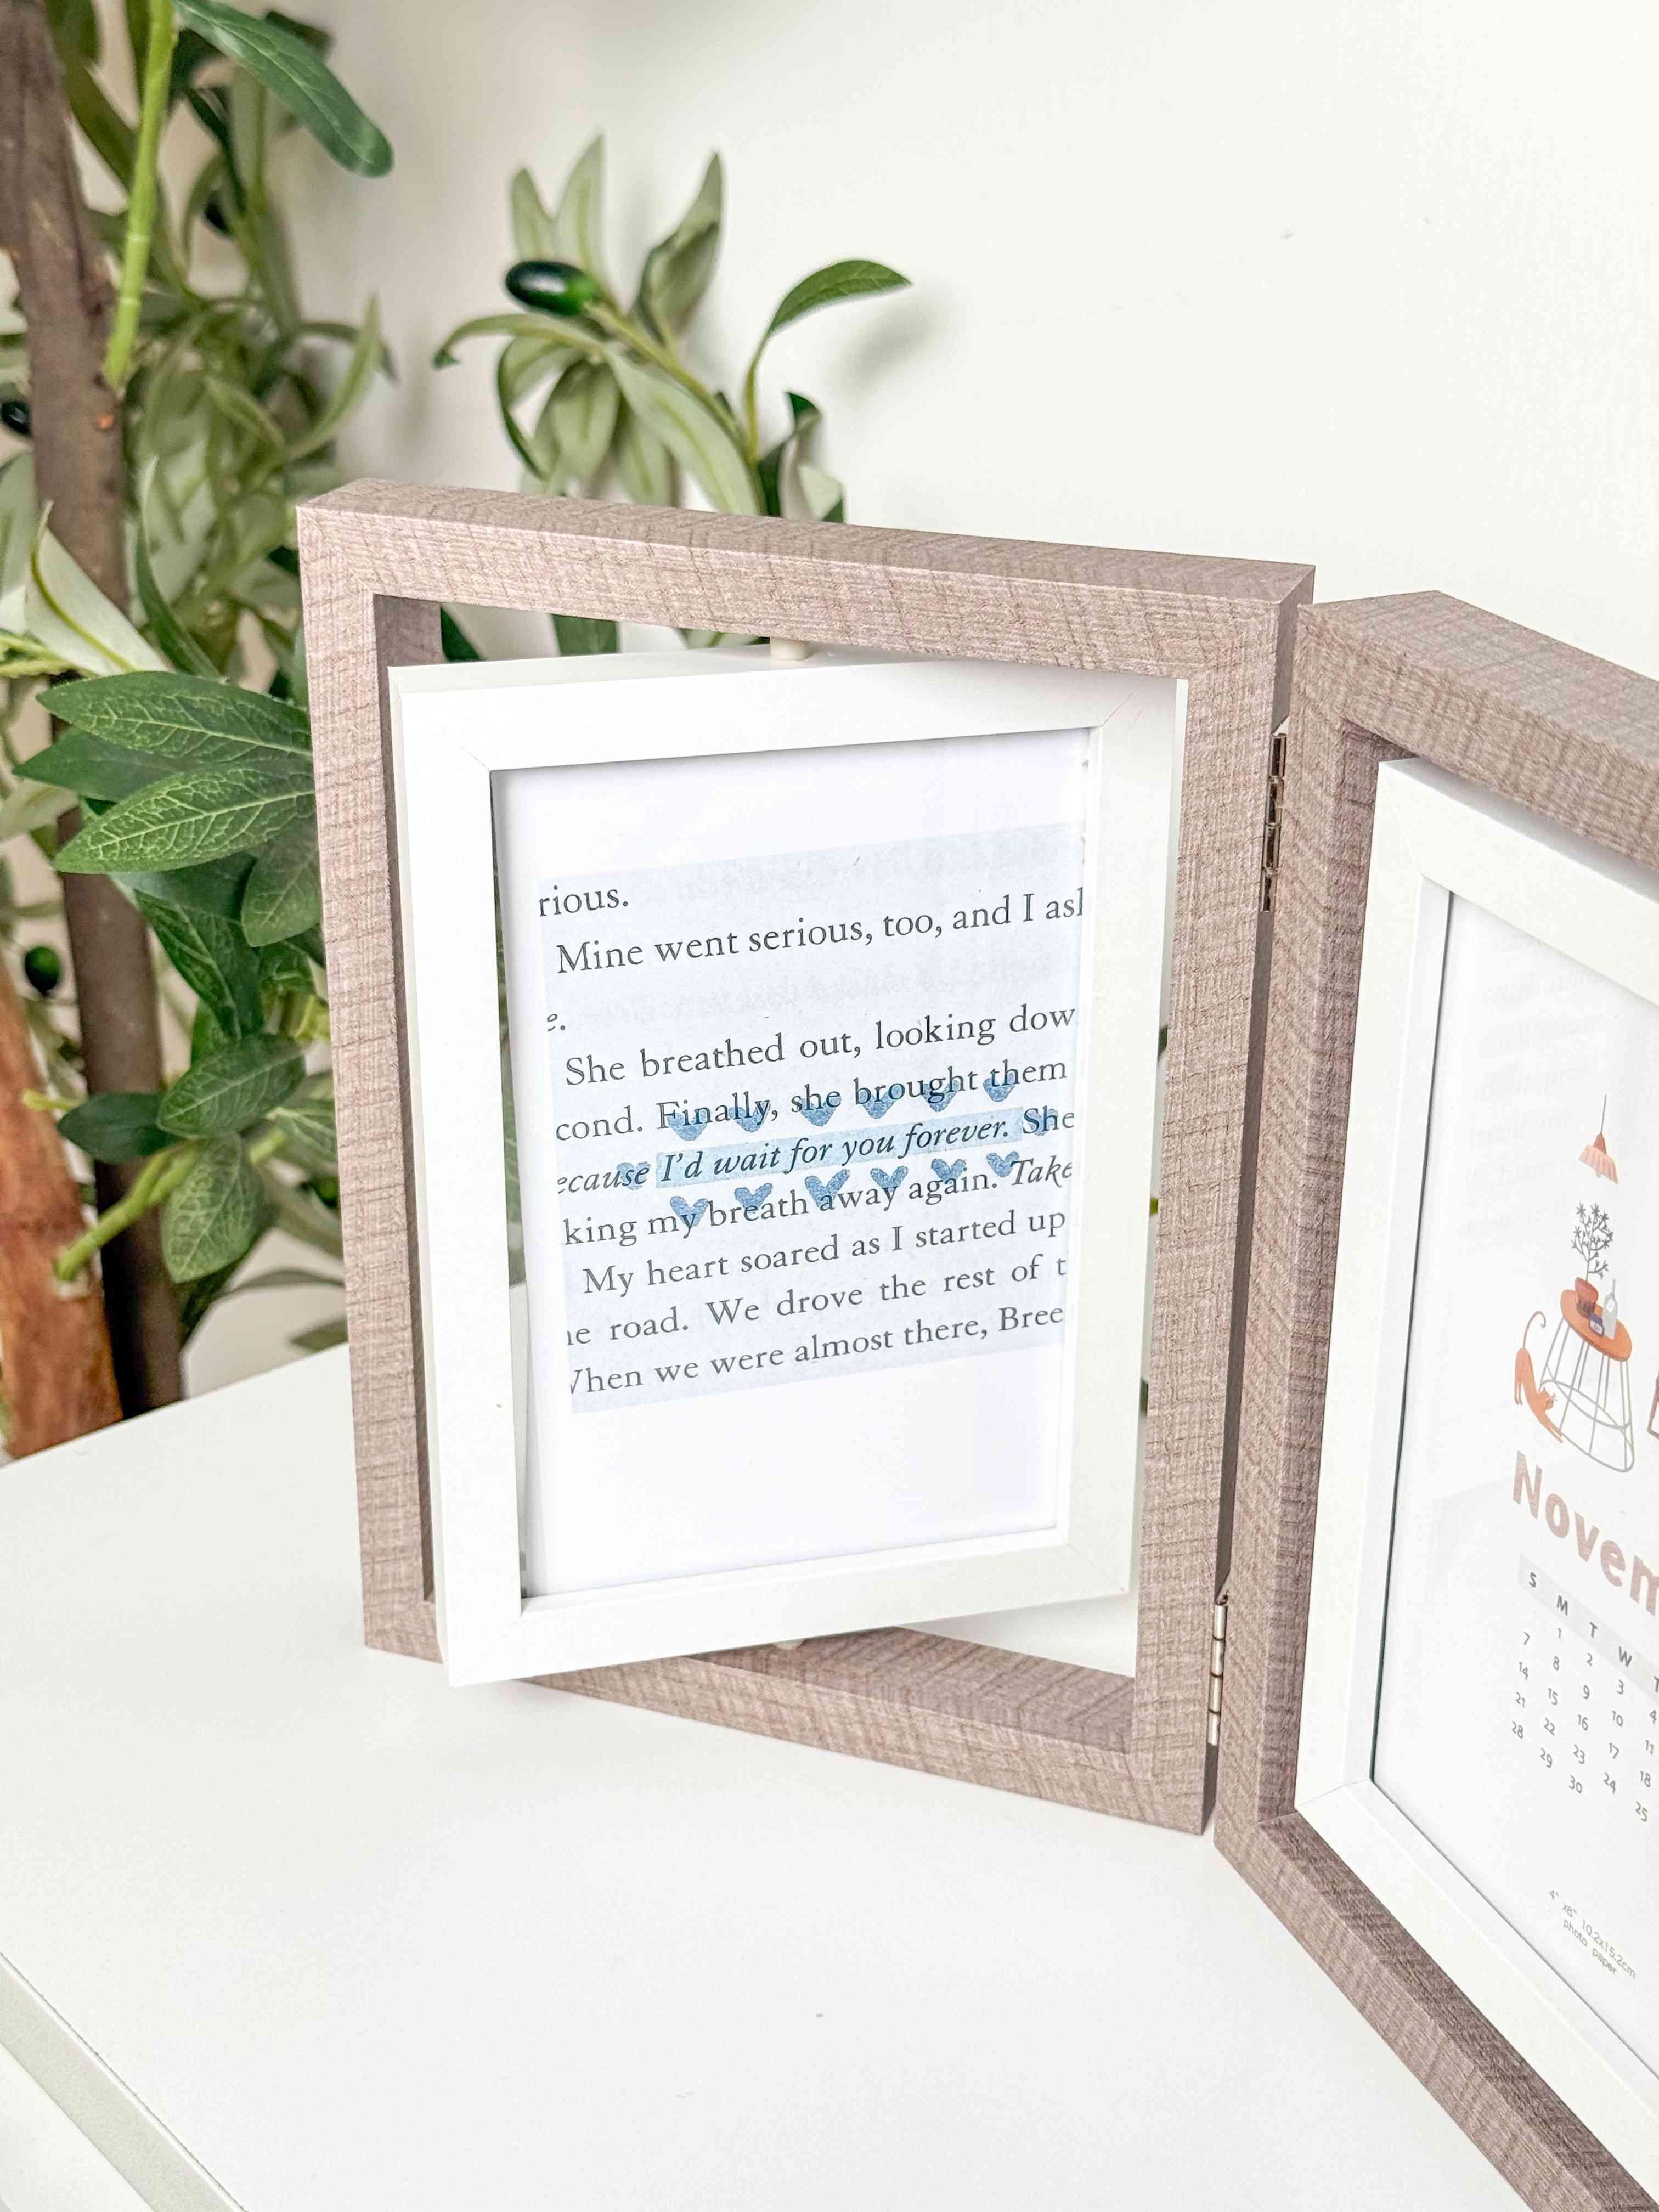 rious.
Mine went serious, too, and I as
e.
She breathed out, looking dow
cond. Finally, she brought them
ecause I'd wait for you forever. She
king my breath away again. Take
My heart soared as I started up
he road. We drove the rest of t
When we were almost there, Bree
Novem
S M T W T
1 2 3 4
7 8 9 10 11
14 15 16 17 18
21 22 23 24 25
28 29 30
4" x6" 10.2x15.2cm
photo paper